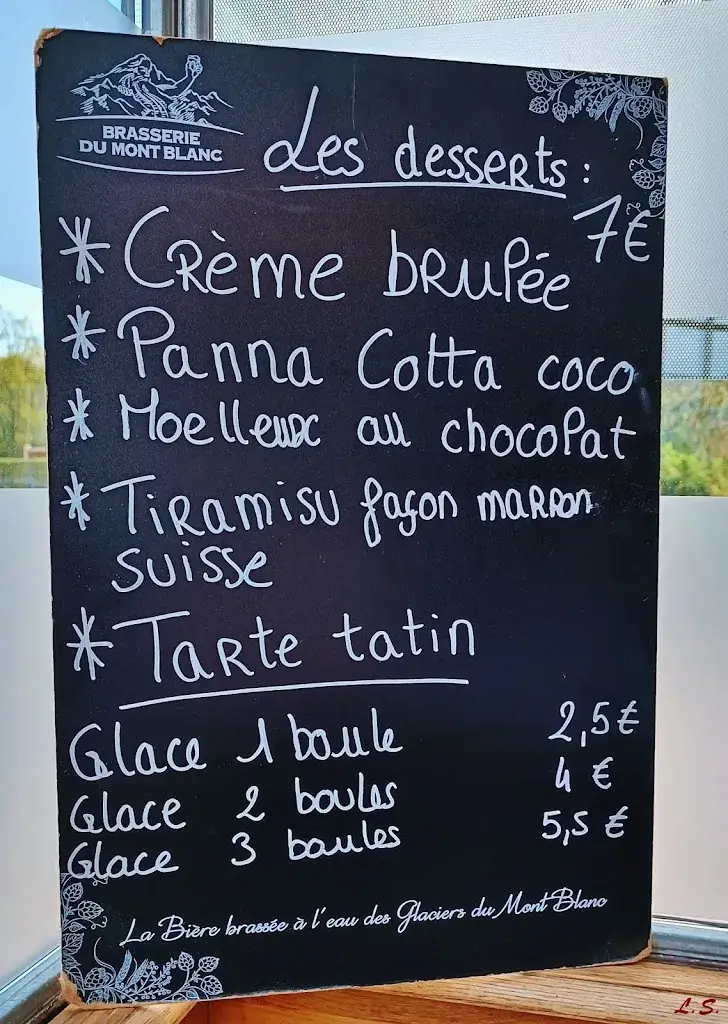 BRASSERIE
DU MONT BLANC
Les desserts :
7€
* Crème brulée
* Panna Cotta coco
* Moelleux au chocolat
* Tiramisu façon marron
suisse
* Tarte tatin
Glace 1 boule 2,5 €
Glace 2 boules 4 €
Glace 3 boules 5,5 €
La Bière brassée à l'eau des Glaciers du Mont Blanc
L.S.